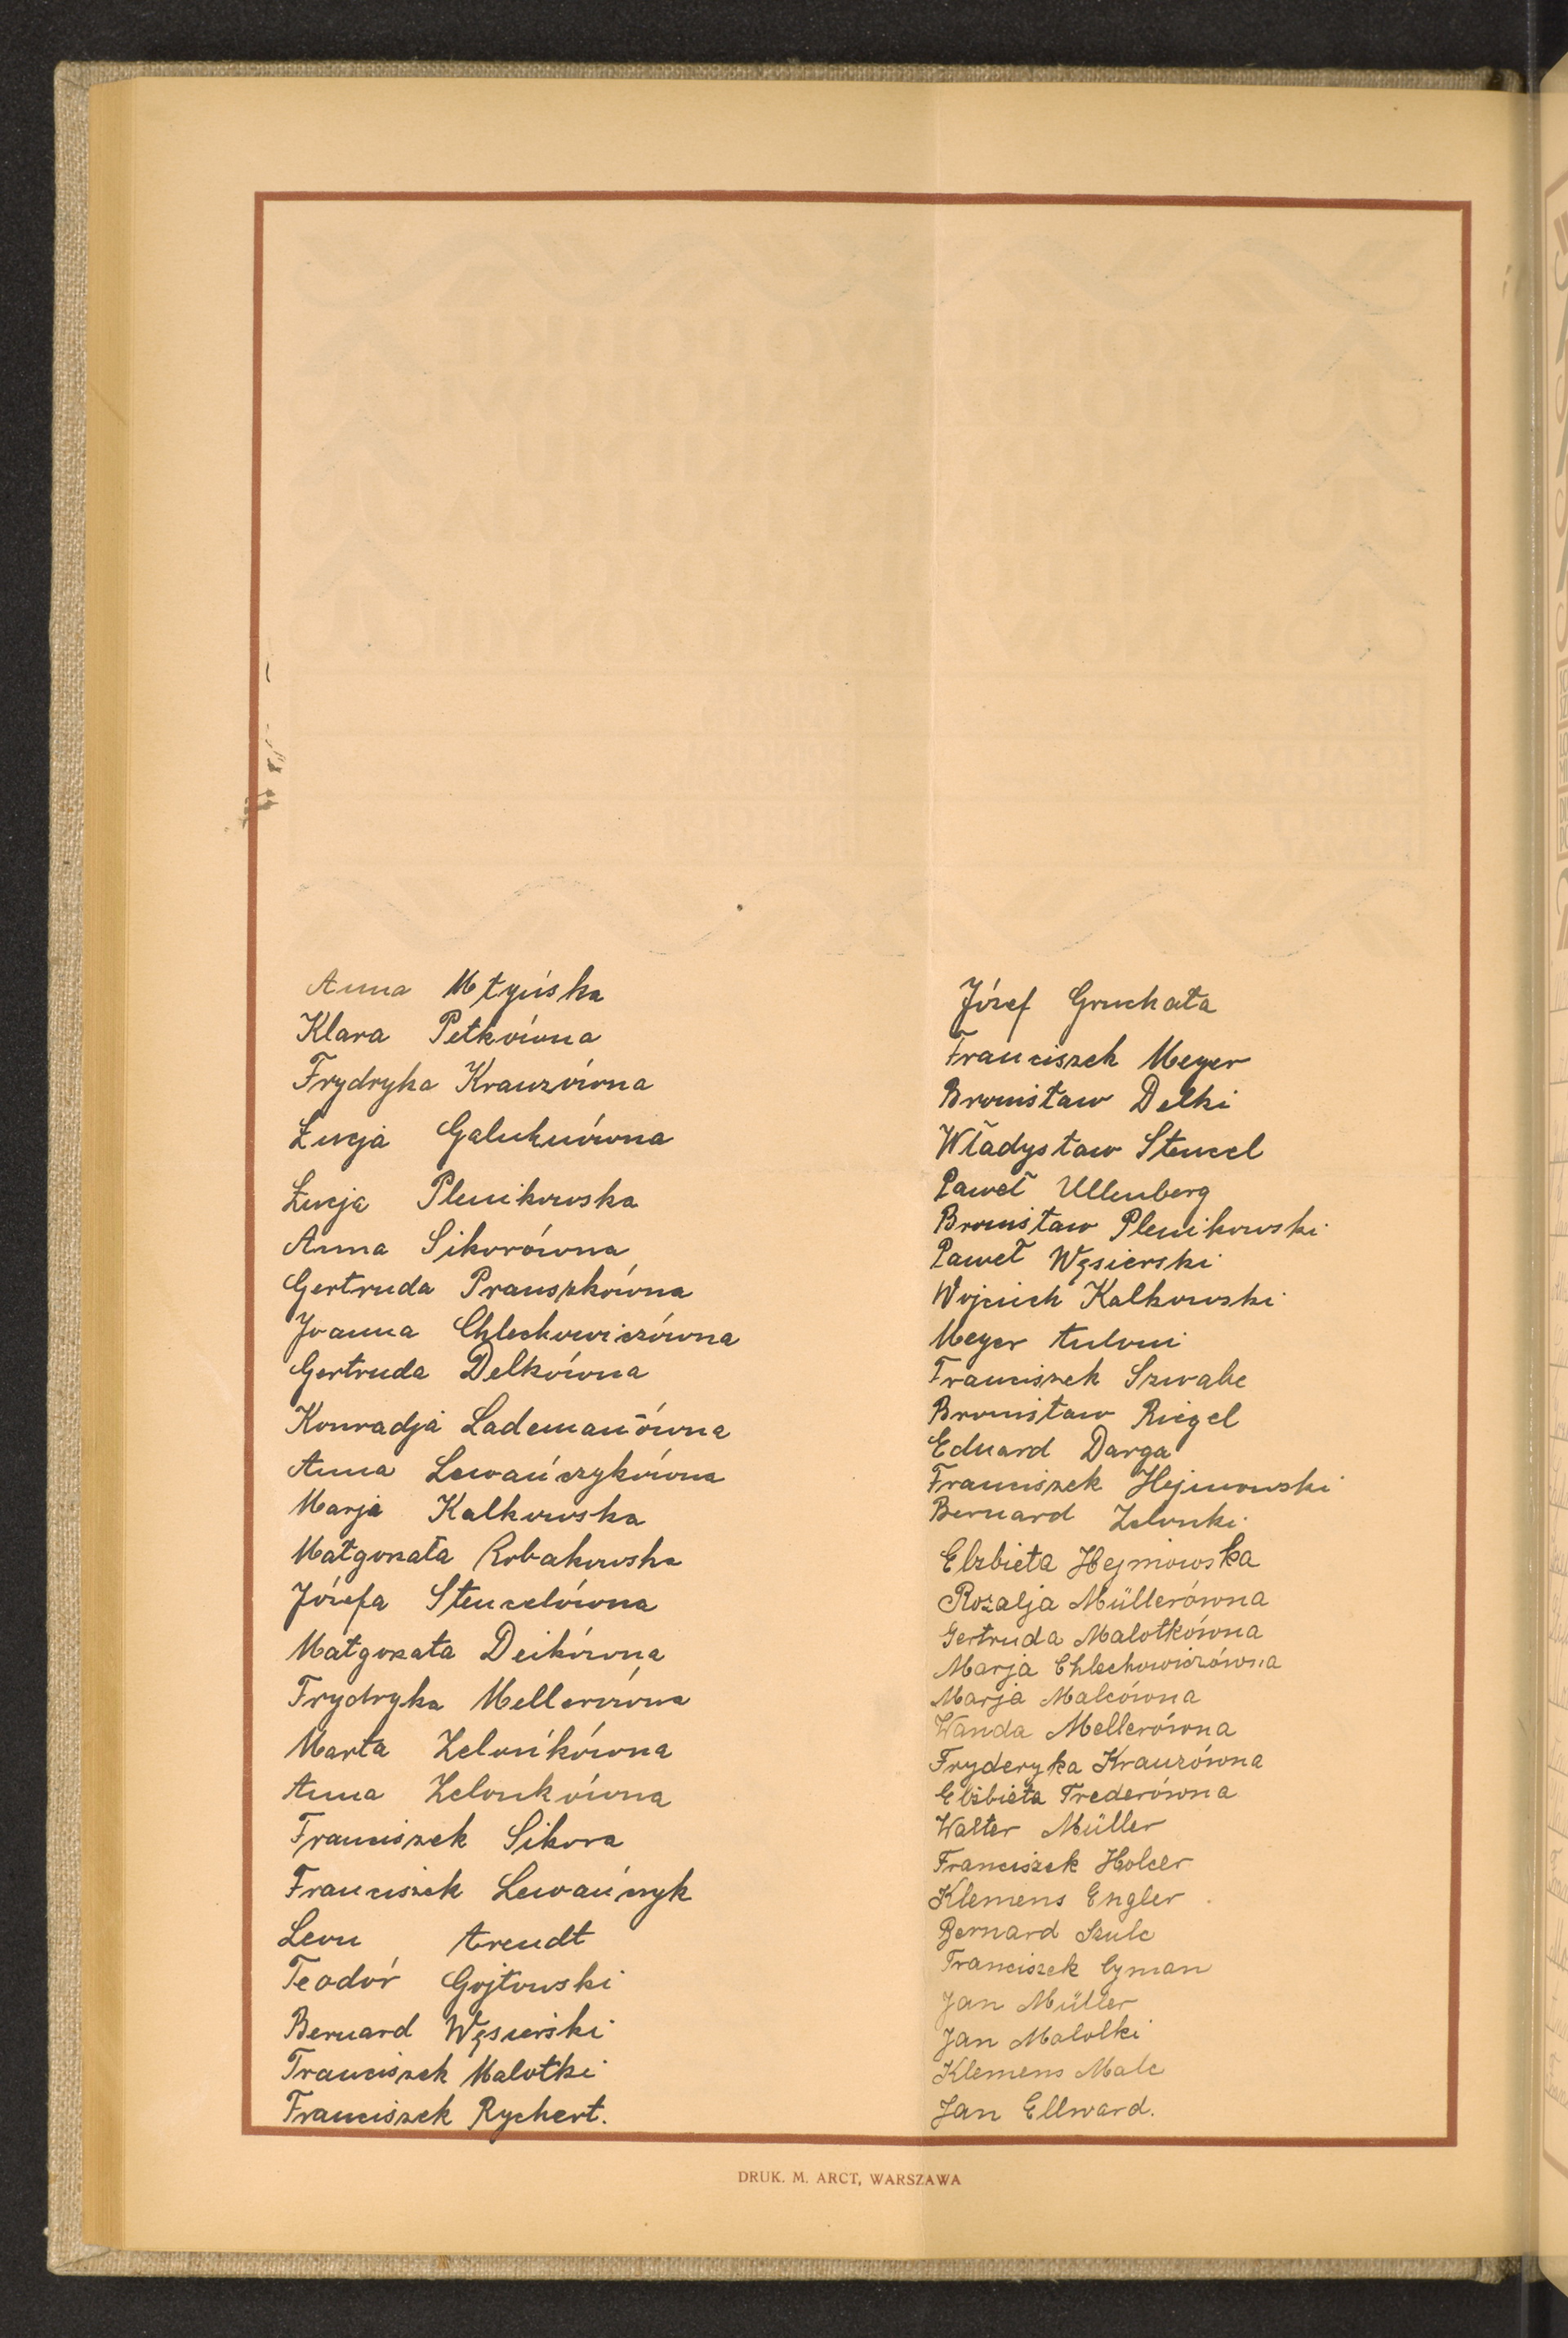 Anna Młyńska
Klara Petkówna
Frydryka Krauzówna
Łucja Galuhnówna
Łucja Plenikowska
Anna Sikorówna
Gertruda Prauszkówna
Joanna Chlechowiczówna
Gertruda Delkówna
Konradja Lademanówna
Anna Lewańczykówna
Marja Kalkowska
Małgorzata Robakowska
Józefa Stencelówna
Małgorzata Deikówna
Frydryka Mellerówna
Marta Zelonkówna
Anna Zelonkówna
Franciszek Sikora
Franciszek Lewańczyk
Leon Arendt
Teodór Gojtowski
Bernard Węsierski
Franciszek Malotki
Franciszek Rychert.
Józef Gruchała
Franciszek Meyer
Bronisław Delki
Władysław Stencel
Paweł Ullenberg
Bronisław Plenikowski
Paweł Węsierski
Wojciech Kalkowski
Meyer Antoni
Franciszek Szwabe
Bronisław Riegel
Eduard Darga
Franciszek Hejmowski
Bernard Zelonki
Elzbieta Hejmowska
Rozalja Müllerówna
Gertruda Malotkówna
Marja Chlechowiczówna
Marja Malcówna
Wanda Mellerówna
Fryderyka Krauzówna
Elżbieta Trederówna
Walter Müller
Franciszek Holcer
Klemens Engler
Bernard Szulc
Franciszek Cyman
Jan Müller
Jan Malolki
Klemens Malc
Jan Ellward.
DRUK. M. ARCT, WARSZAWA